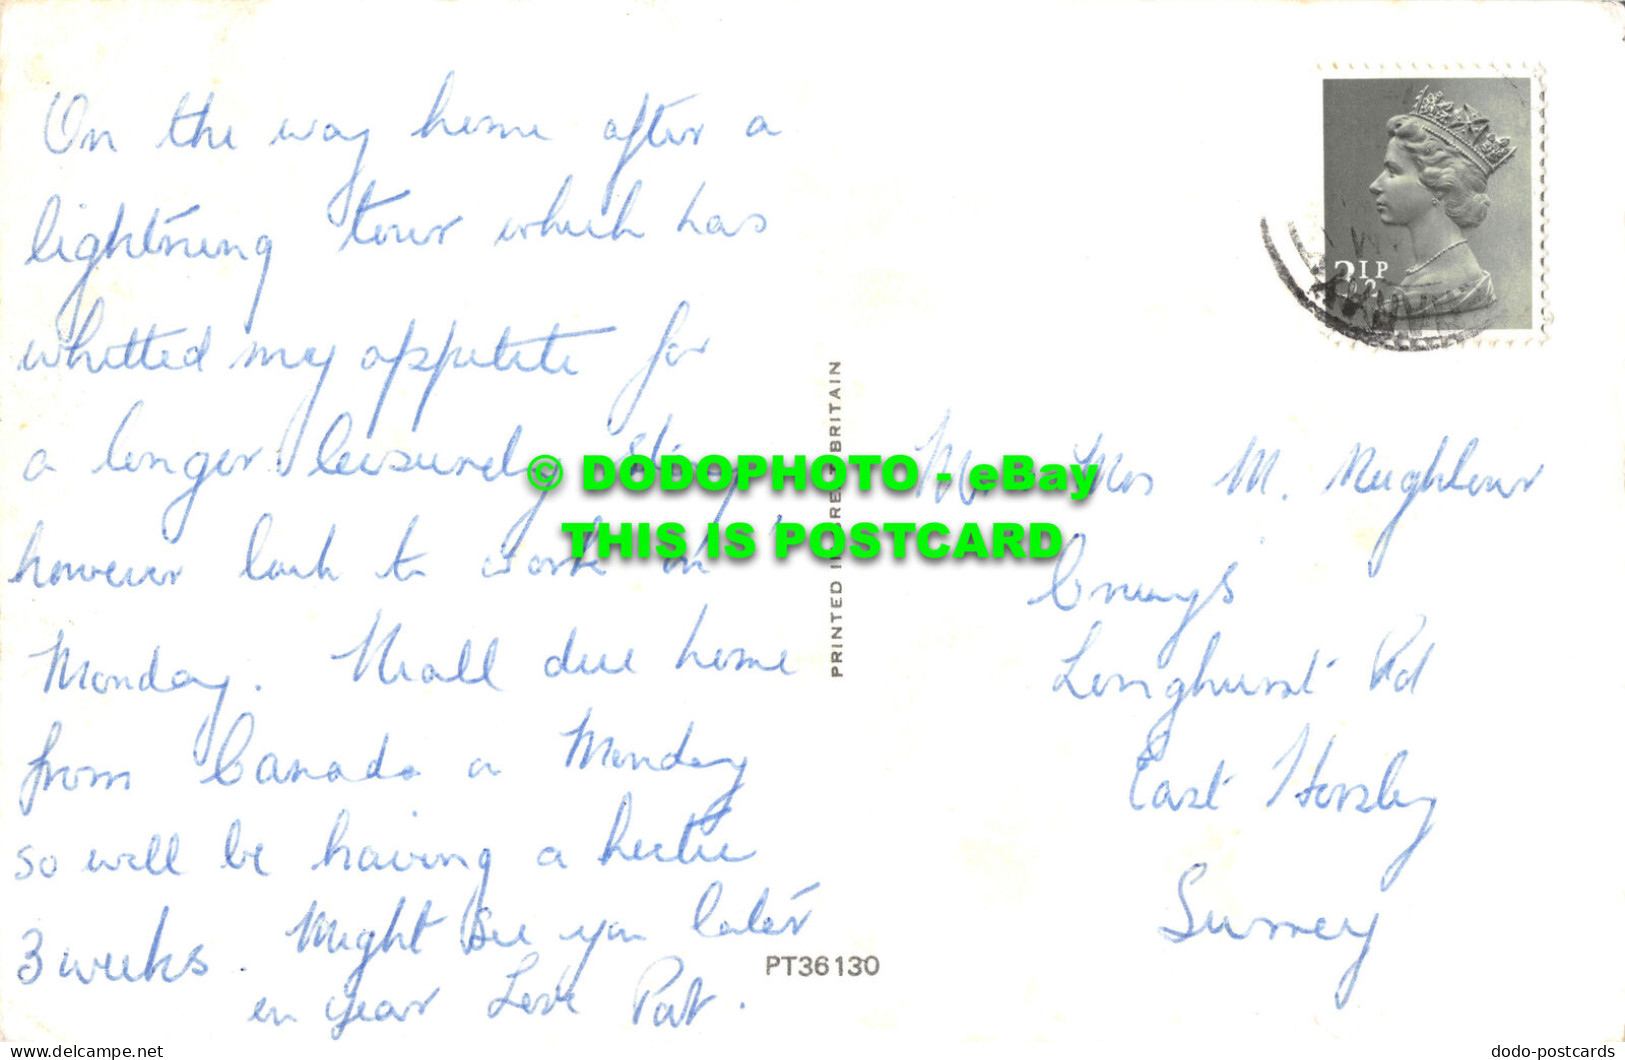 On the way home after a
lightning tour which has
whetted my appetite for
a longer leisurely stay,
however back to work on
Monday. Niall due home
from Canada on Monday
so will be having a hectic
3 weeks. Might see you later
in year Love Pat.
PT36130
PRINTED IN GREAT BRITAIN
½P
Mr. Mrs M. Neighbour
Longhurst Rd
East Horsley
Surrey
© DODOPHOTO - eBay
THIS IS POSTCARD
dodo-postcards